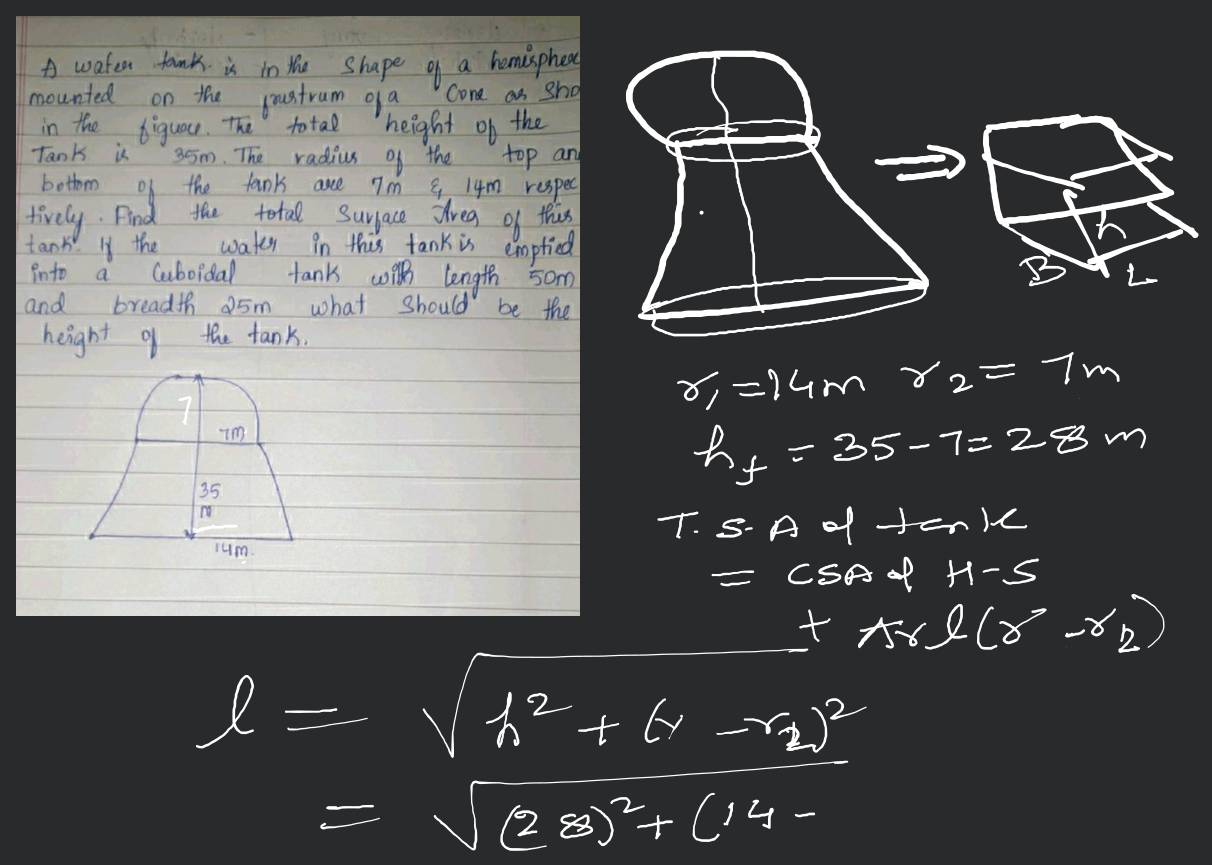 A water tank is in the shape of a hemisphere
mounted on the frustrum of a Cone as Sho
in the figuore. The total height of the
Tank is 35m. The radius of the top an
bottom of the tank are 7m & 14m respec
tively. Find the total Surface Area of this
tank. If the water in this tank is emptied
into a Cuboidal tank with length 50m
and breadth 25m what Should be the
height of the tank.
7
7m
35
m
14m.
h
B L
r₁ = 14m r₂ = 7m
h_f = 35-7 = 28 m
T.S.A of tank
= CSA of H-S
+ πrl(r - r₂)
l = √h² + (r - r₂)²
= √(28)² + (14 -